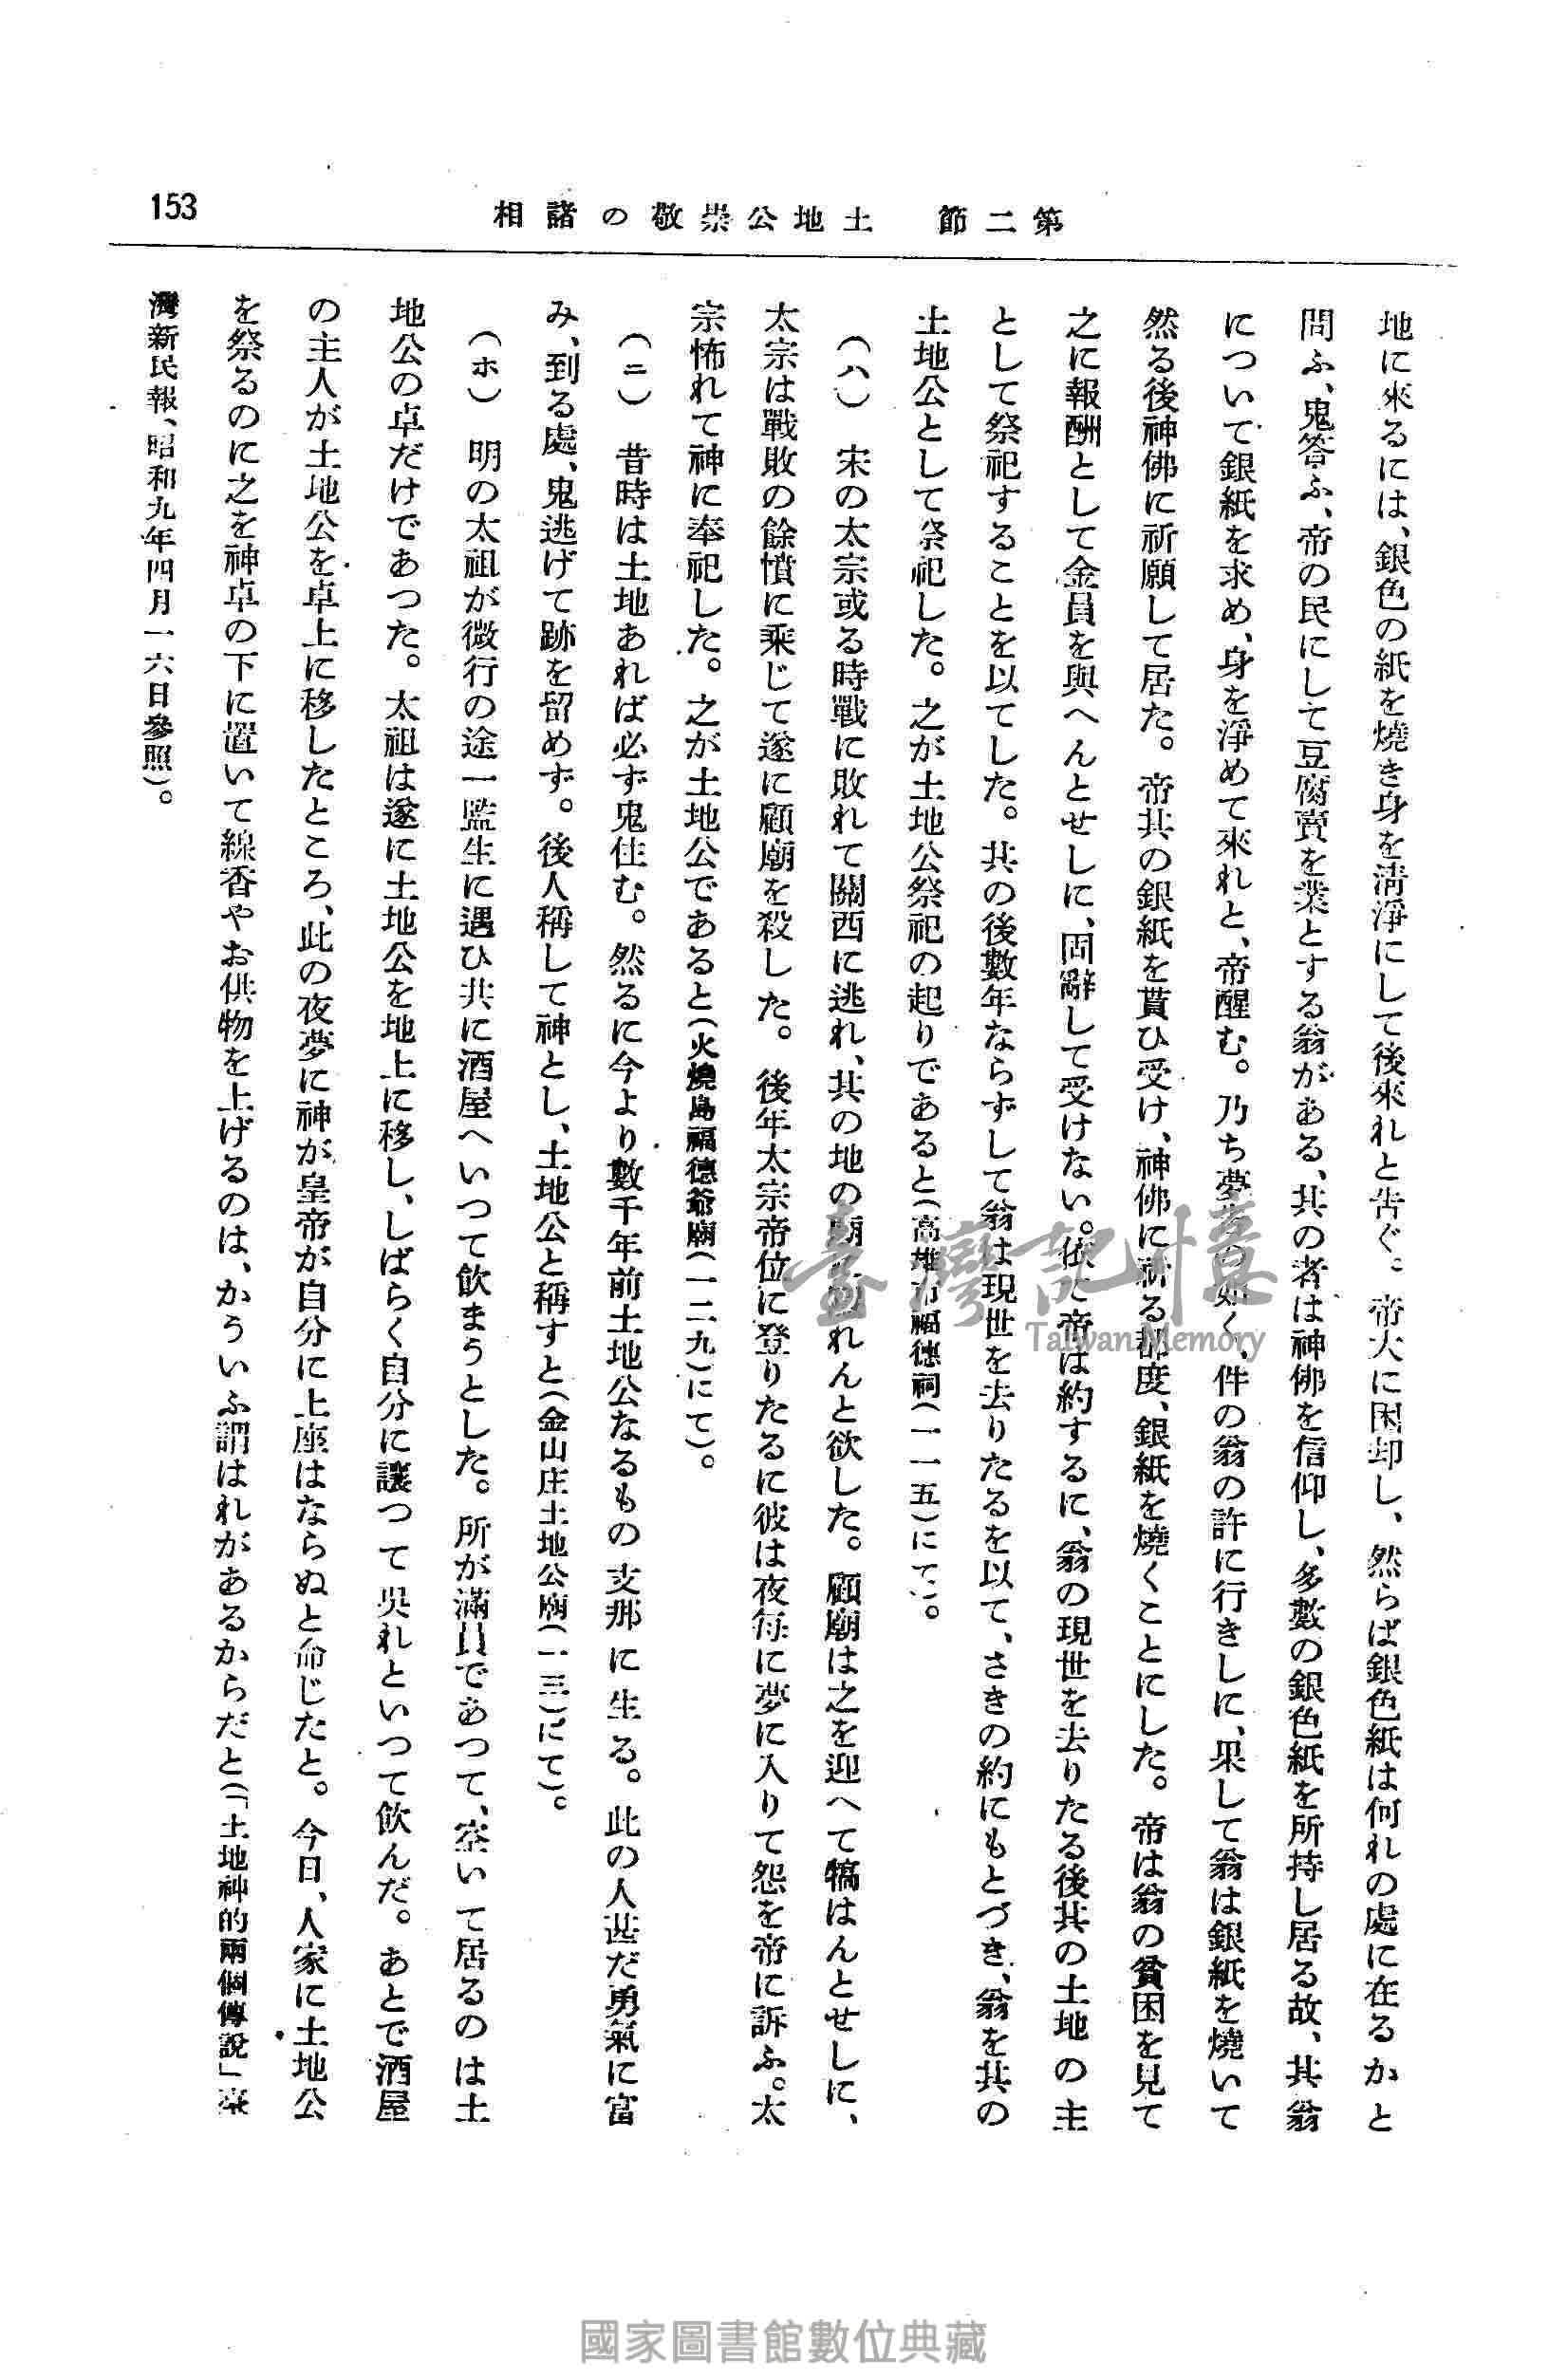 第二節　土地公崇敬の諸相
153
地に來るには、銀色の紙を燒き身を淸淨にして後來れと吿ぐ。帝大に困却し、然らば銀色紙は何れの處に在るかと
問ふ、鬼答ふ、帝の民にして豆腐賣を業とする翁がある、其の者は神佛を信仰し、多數の銀色紙を所持し居る故、其翁
について銀紙を求め、身を淨めて來れと、帝醒む。乃ち夢の如く、件の翁の許に行きしに、果して翁は銀紙を燒いて
然る後神佛に祈願して居た。帝其の銀紙を貰ひ受け、神佛に祈る都度、銀紙を燒くことにした。帝は翁の貧困を見て
之に報酬として金員を與へんとせしに、固辭して受けない。依て帝は約するに、翁の現世を去りたる後其の土地の主
として祭祀することを以てした。其の後數年ならずして翁は現世を去りたるを以て、さきの約にもとづき、翁を其の
土地公として祭祀した。之が土地公祭祀の起りであると(高雄市福德祠(一一五)にて)。
(ハ)　宋の太宗或る時戰に敗れて關西に逃れ、其の地の廟にれんと欲した。顧廟は之を迎へて犒はんとせしに、
太宗は戰敗の餘憤に乘じて遂に顧廟を殺した。後年太宗帝位に登りたるに彼は夜每に夢に入りて怨を帝に訴ふ。太
宗怖れて神に奉祀した。之が土地公であると(火燒島福德爺廟(一二九)にて)。
(ニ)　昔時は土地あれば必ず鬼住む。然るに今より數千年前土地公なるもの支那に生る。此の人甚だ勇氣に富
み、到る處、鬼逃げて跡を留めず。後人稱して神とし、土地公と稱すと(金山庄土地公廟(一三)にて)。
(ホ)　明の太祖が微行の途一監生に遇ひ共に酒屋へいつて飮まうとした。所が滿員であつて、空いて居るのは土
地公の卓だけであつた。太祖は遂に土地公を地上に移し、しばらく自分に讓つて吳れといつて飮んだ。あとで酒屋
の主人が土地公を卓上に移したところ、此の夜夢に神が皇帝が自分に上座はならぬと命じたと。今日、人家に土地公
を祭るのに之を神卓の下に置いて線香やお供物を上げるのは、かういふ謂はれがあるからだと(「土地神的兩個傳說」臺
灣新民報、昭和九年四月一六日參照)。
臺灣記憶
Taiwan Memory
國家圖書館數位典藏